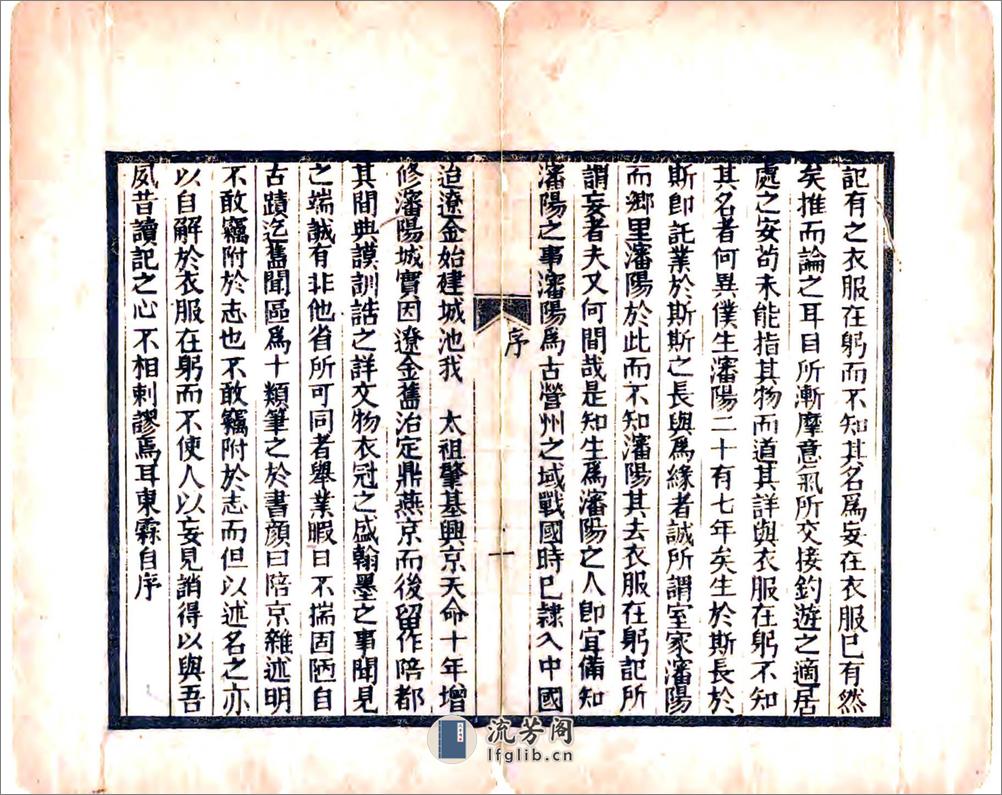 記有之衣服在躬而不知其名爲妄在衣服已有然
矣推而論之耳目所漸摩意氣所交接釣遊之適居
處之安苟未能指其物而道其詳與衣服在躬不知
其名者何異僕生瀋陽二十有七年矣生於斯長於
斯即託業於斯斯之長與爲緣者誠所謂室家瀋陽
而鄉里瀋陽於此而不知瀋陽其去衣服在躬記所
謂妄者夫又何間哉是知生爲瀋陽之人即宜備知
瀋陽之事瀋陽爲古營州之域戰國時已隸入中國
序
一
迨遼金始建城池我 太祖肇基興京天命十年增
修瀋陽城實因遼金舊治定鼎燕京而後留作陪都
其間典謨訓誥之詳文物衣冠之盛翰墨之事聞見
之端誠有非他省所可同者舉業暇日不揣固陋自
古蹟迄舊聞區爲十類筆之於書顔曰陪京雜述明
不敢竊附於志也不敢竊附於志而但以述名之亦
以自解於衣服在躬而不使人以妄見誚得以與吾
夙昔讀記之心不相剌謬焉耳東霖自序
流芳阁
lfglib.cn